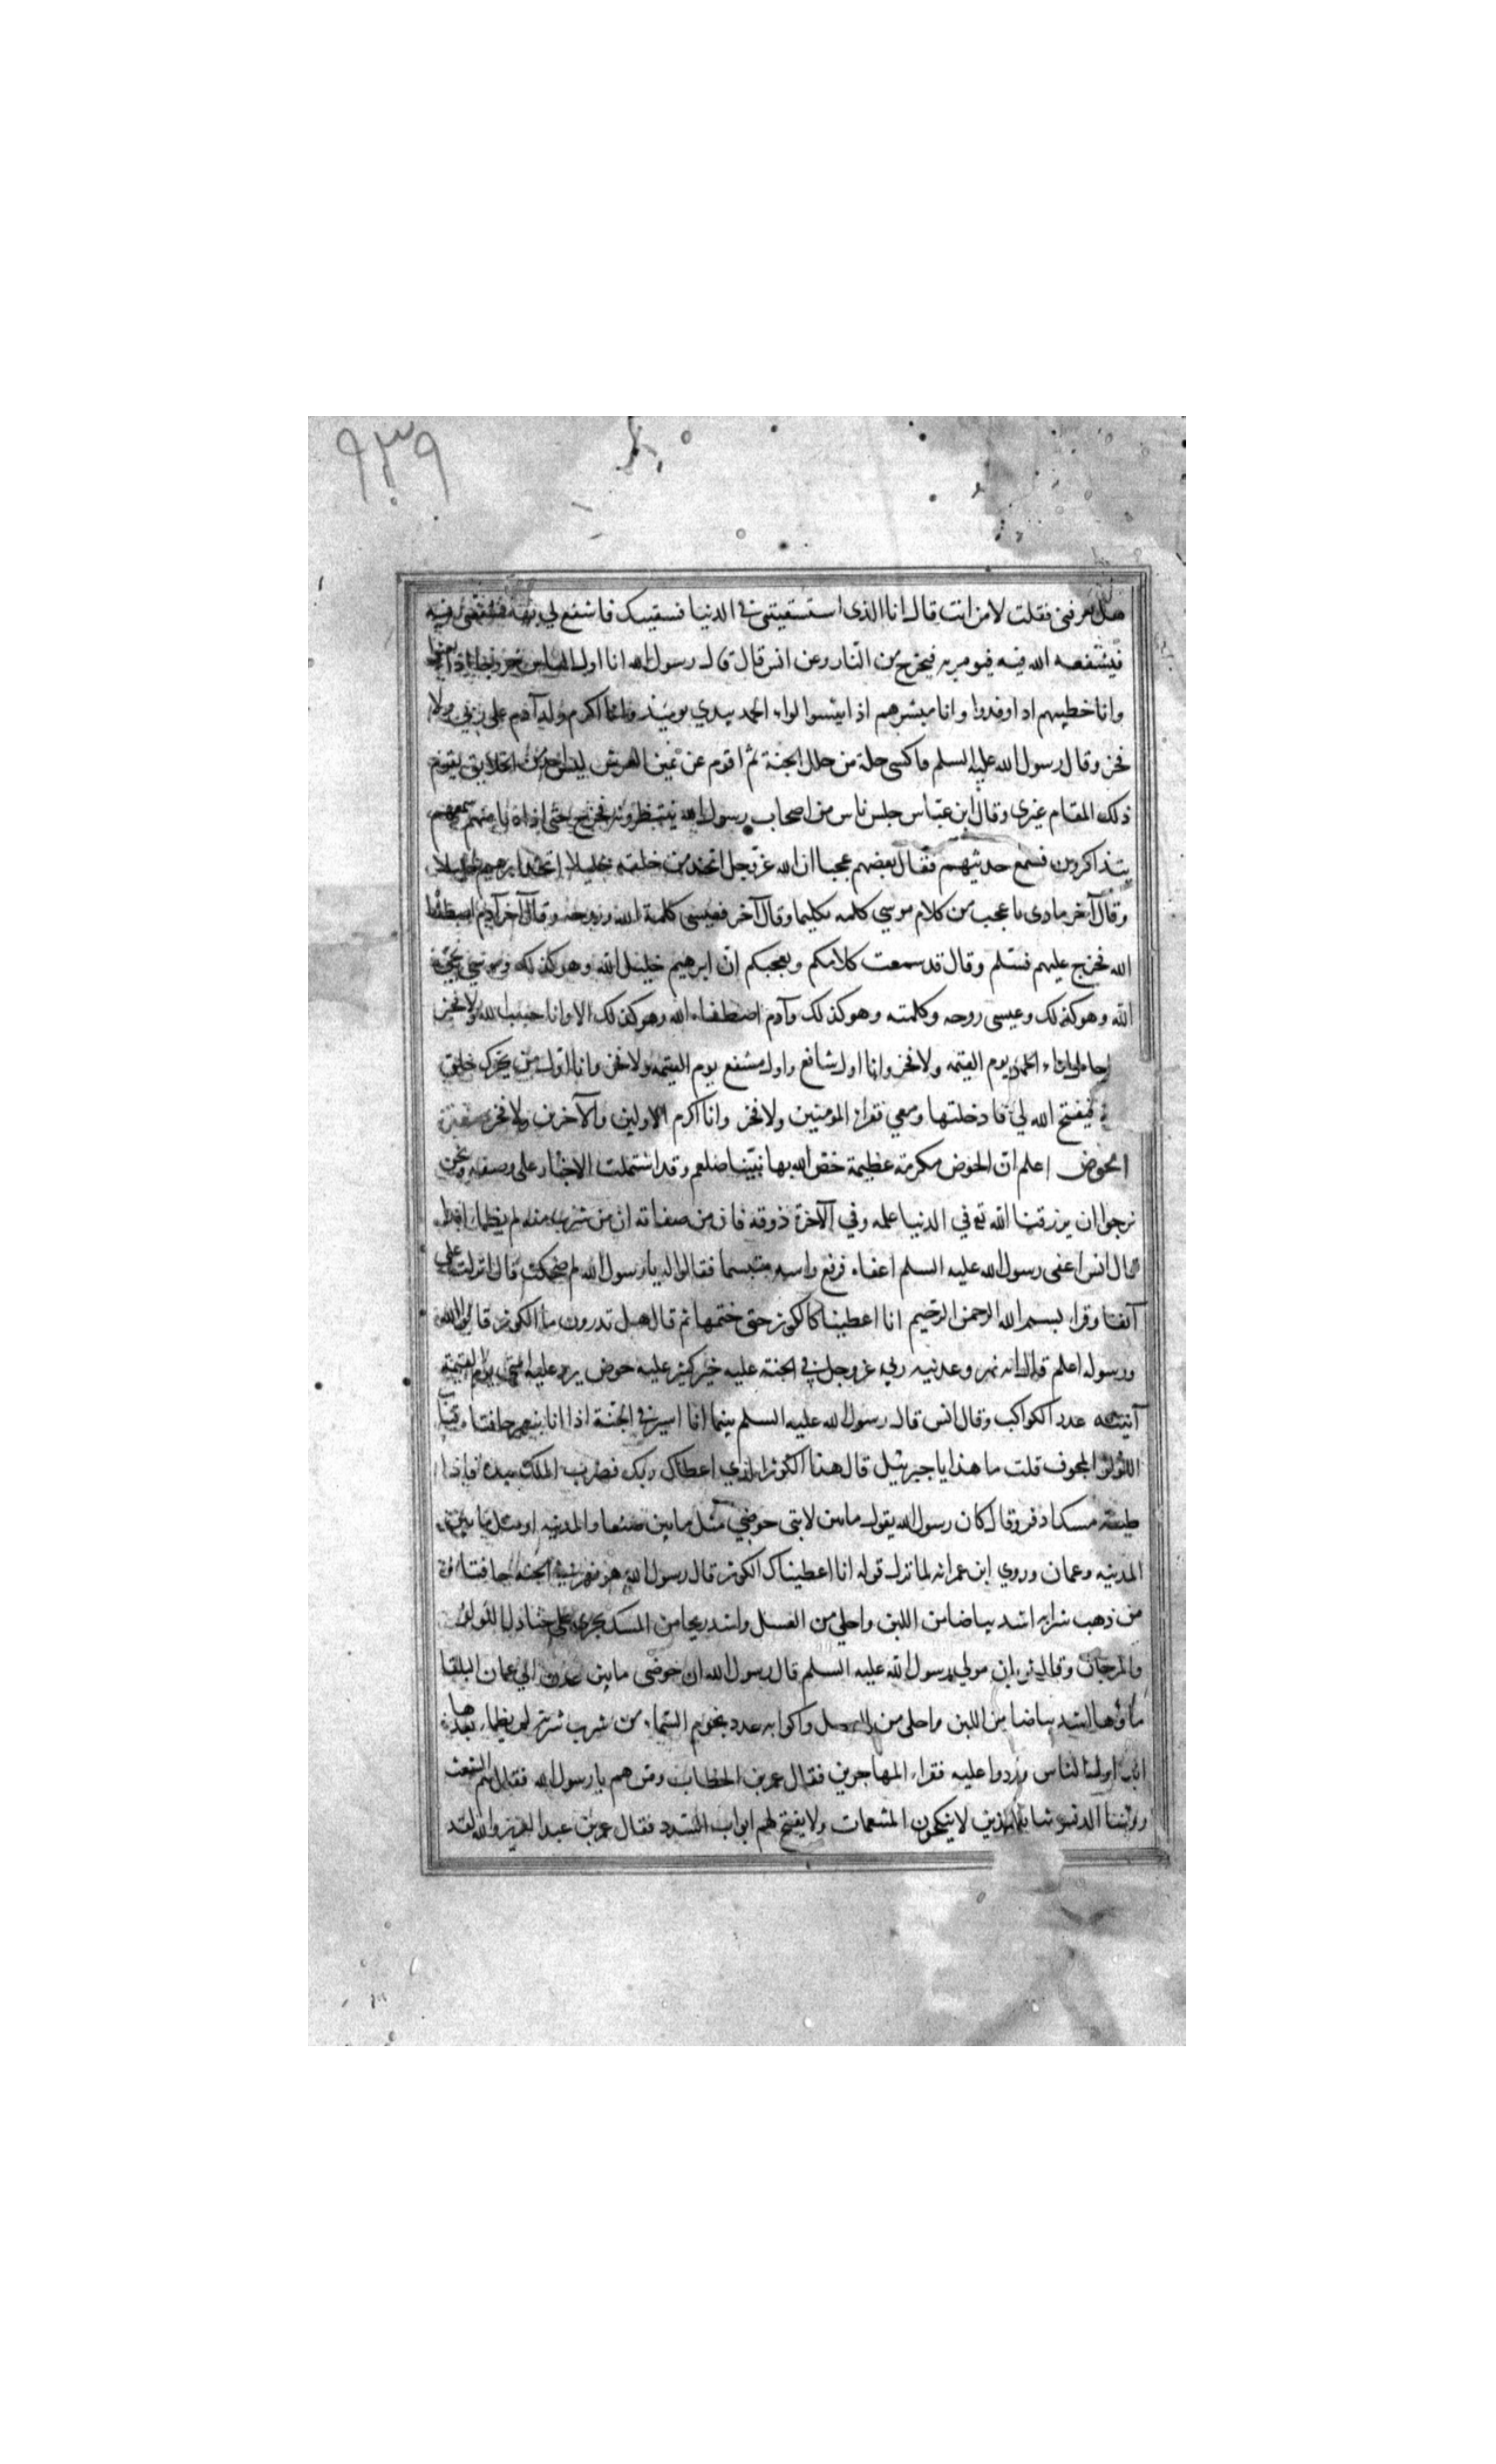 ٩٣٩
هل تعرفنى فقلت لا من انت قال انا الذى استسقيتنى فى الدنيا فسقيتك فاشفع لى بها فشفعنى فيه
فيشفعه الله فيه فيومر به فيخرج من النار وعن انس قال قال رسول الله انا اول الناس خروجا اذا بعثوا
وانا خطيبهم اذا وفدوا وانا مبشرهم اذا ايئسوا لواء الحمد بيدي يومئذ وانا اكرم ولد آدم على ربي ولا
فخر وقال رسول الله عليه السلم فاكسى حلة من حلل الجنة ثم اقوم عن يمين العرش ليس احد من الخلايق يقوم
ذلك المقام غيري وقال ابن عباس جلس ناس من اصحاب رسول الله ينتظرونه فخرج حتى اذا دنا منهم سمعهم
يتذاكرون فسمع حديثهم فقال بعضهم عجبا ان الله عز وجل اتخذ من خلقه خليلا اتخذ ابرهيم خليلا
وقال آخر ماذى باعجب من كلام موسي كلمه تكليما وقال آخر فعيسى كلمة الله وروحه وقال آخر آدم اصطفاه
الله فخرج عليهم فسلم وقال قد سمعت كلامكم وتعجبكم ان ابرهيم خليل الله وهو كذلك وموسي نجي
الله وهو كذلك وعيسى روحه وكلمته وهو كذلك وآدم اصطفاه الله وهو كذلك الا وانا حبيب الله ولا فخر
الحمد يوم القيمه ولا فخر وانا اول شافع واول مشفع يوم القيمه ولا فخر وانا اول من يحرك حلق
فيفتح الله لي فادخلنها ومعي فقراء المومنين ولا فخر وانا اكرم الاولين والآخرين ولا فخر صفة
الحوض اعلم ان الحوض مكرمة عظيمة خص الله بها نبينا صلعم وقد اشتملت الاخبار على وصفه ونحن
نرجوا ان يرزقنا الله تع في الدنيا علمه وفي الآخرة ذوقه فان من صفاته ان من شرب منه لم يظما ابدا
قال انس اغفى رسول الله عليه السلم اغفاء فرفع راسه متبسما فقالوا له يا رسول الله لم ضحكت قال انزلت علي
آنفا وقرا بسم الله الرحمن الرحيم انا اعطيناك الكوثر حتى ختمها ثم قال هل تدرون ما الكوثر قالوا الله
ورسوله اعلم قال انه نهر وعدنيه ربي عز وجل فى الجنة عليه خير كثير عليه حوض يرد عليه امتى يوم القيمة
آنيته عدد الكواكب وقال انس قال رسول الله عليه السلم بينما انا اسير فى الجنة اذا انا بنهر حافتاه قباب
اللؤلؤ المجوف قلت ما هذا يا جبرئيل قال هذا الكوثر الذي اعطاك ربك فضرب الملك بيده فاذا
طينه مسك اذفر وقال كان رسول الله يقول مابين لابتى حوضي مثل مابين صنعا والمدينه او مثل مابين
المدينه وعمان وروي ابن عمر انه لما نزل قوله انا اعطيناك الكوثر قال رسول الله هو نهر فى الجنه حافتاه
من ذهب شرابه اشد بياضا من اللبن واحلى من العسل واشد ريحا من المسك يجرى على جنادل اللولو
والمرجان وقال ثوبان مولي رسول الله عليه السلم قال رسول الله ان حوضى مابين عدن الي عمان البلقا
ماؤها اشد بياضا من اللبن واحلى من العسل واكوابه عدد نجوم السماء من شرب شربة لم يظما بعدها
ابدا اول الناس وردوا عليه فقراء المهاجرين فقال عمر بن الخطاب ومن هم يا رسول الله فقال هم الشعث
رؤسا الدنس ثيابا الذين لا ينكحون المتنعمات ولا يفتح لهم ابواب السدد فقال عمر بن عبد العزيز والله لقد